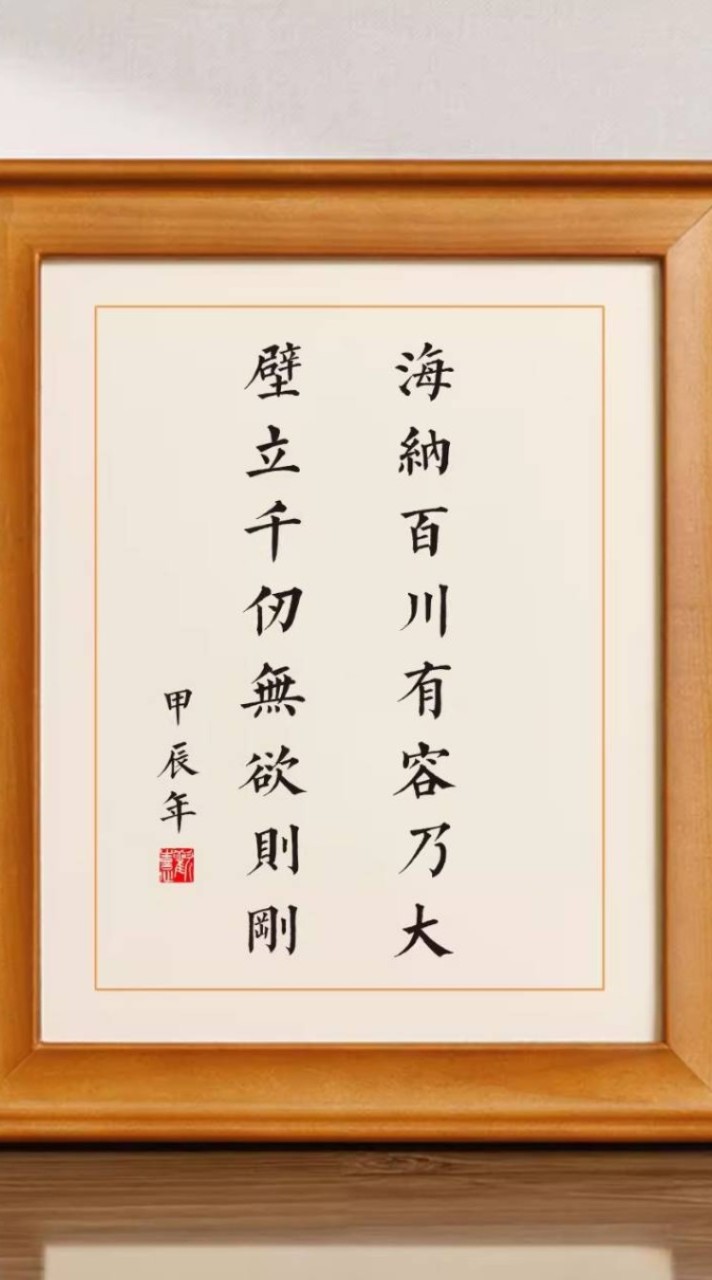 海納百川有容乃大
壁立千仞無欲則剛
甲辰年